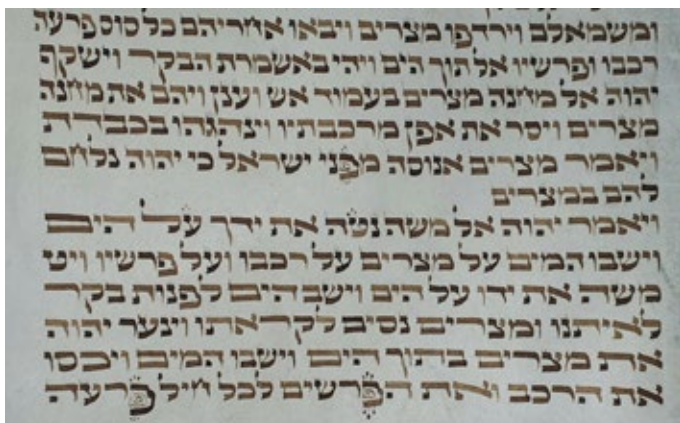 ומשמאלם וירדפו מצרים ויבאו אחריהם כל סוס פרעה
רכבו ופרשיו אל תוך הים ויהי באשמרת הבקר וישקף
יהוה אל מחנה מצרים בעמוד אש וענן ויהם את מחנה
מצרים ויסר את אפן מרכבתיו וינהגהו בכבדת
ויאמר מצרים אנוסה מפני ישראל כי יהוה נלחם
להם במצרים
ויאמר יהוה אל משה נטה את ידך על הים
וישבו המים על מצרים על רכבו ועל פרשיו ויט
משה את ידו על הים וישב הים לפנות בקר
לאיתנו ומצרים נסים לקראתו וינער יהוה
את מצרים בתוך הים וישבו המים ויכסו
את הרכב ואת הפרשים לכל חיל פרעה